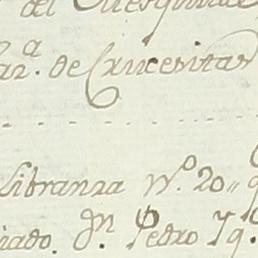 del
ar.ª de Crucevitas
Libranza N.º 20,,
nado. Dn. Pedro Yg.